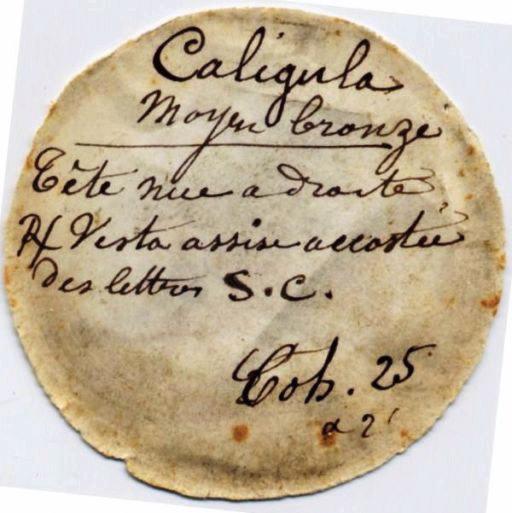 Caligula
Moyen bronze
Tête nue a droite
R/ Vesta assise accostée
des lettres S.C.
Coh. 25
a 2